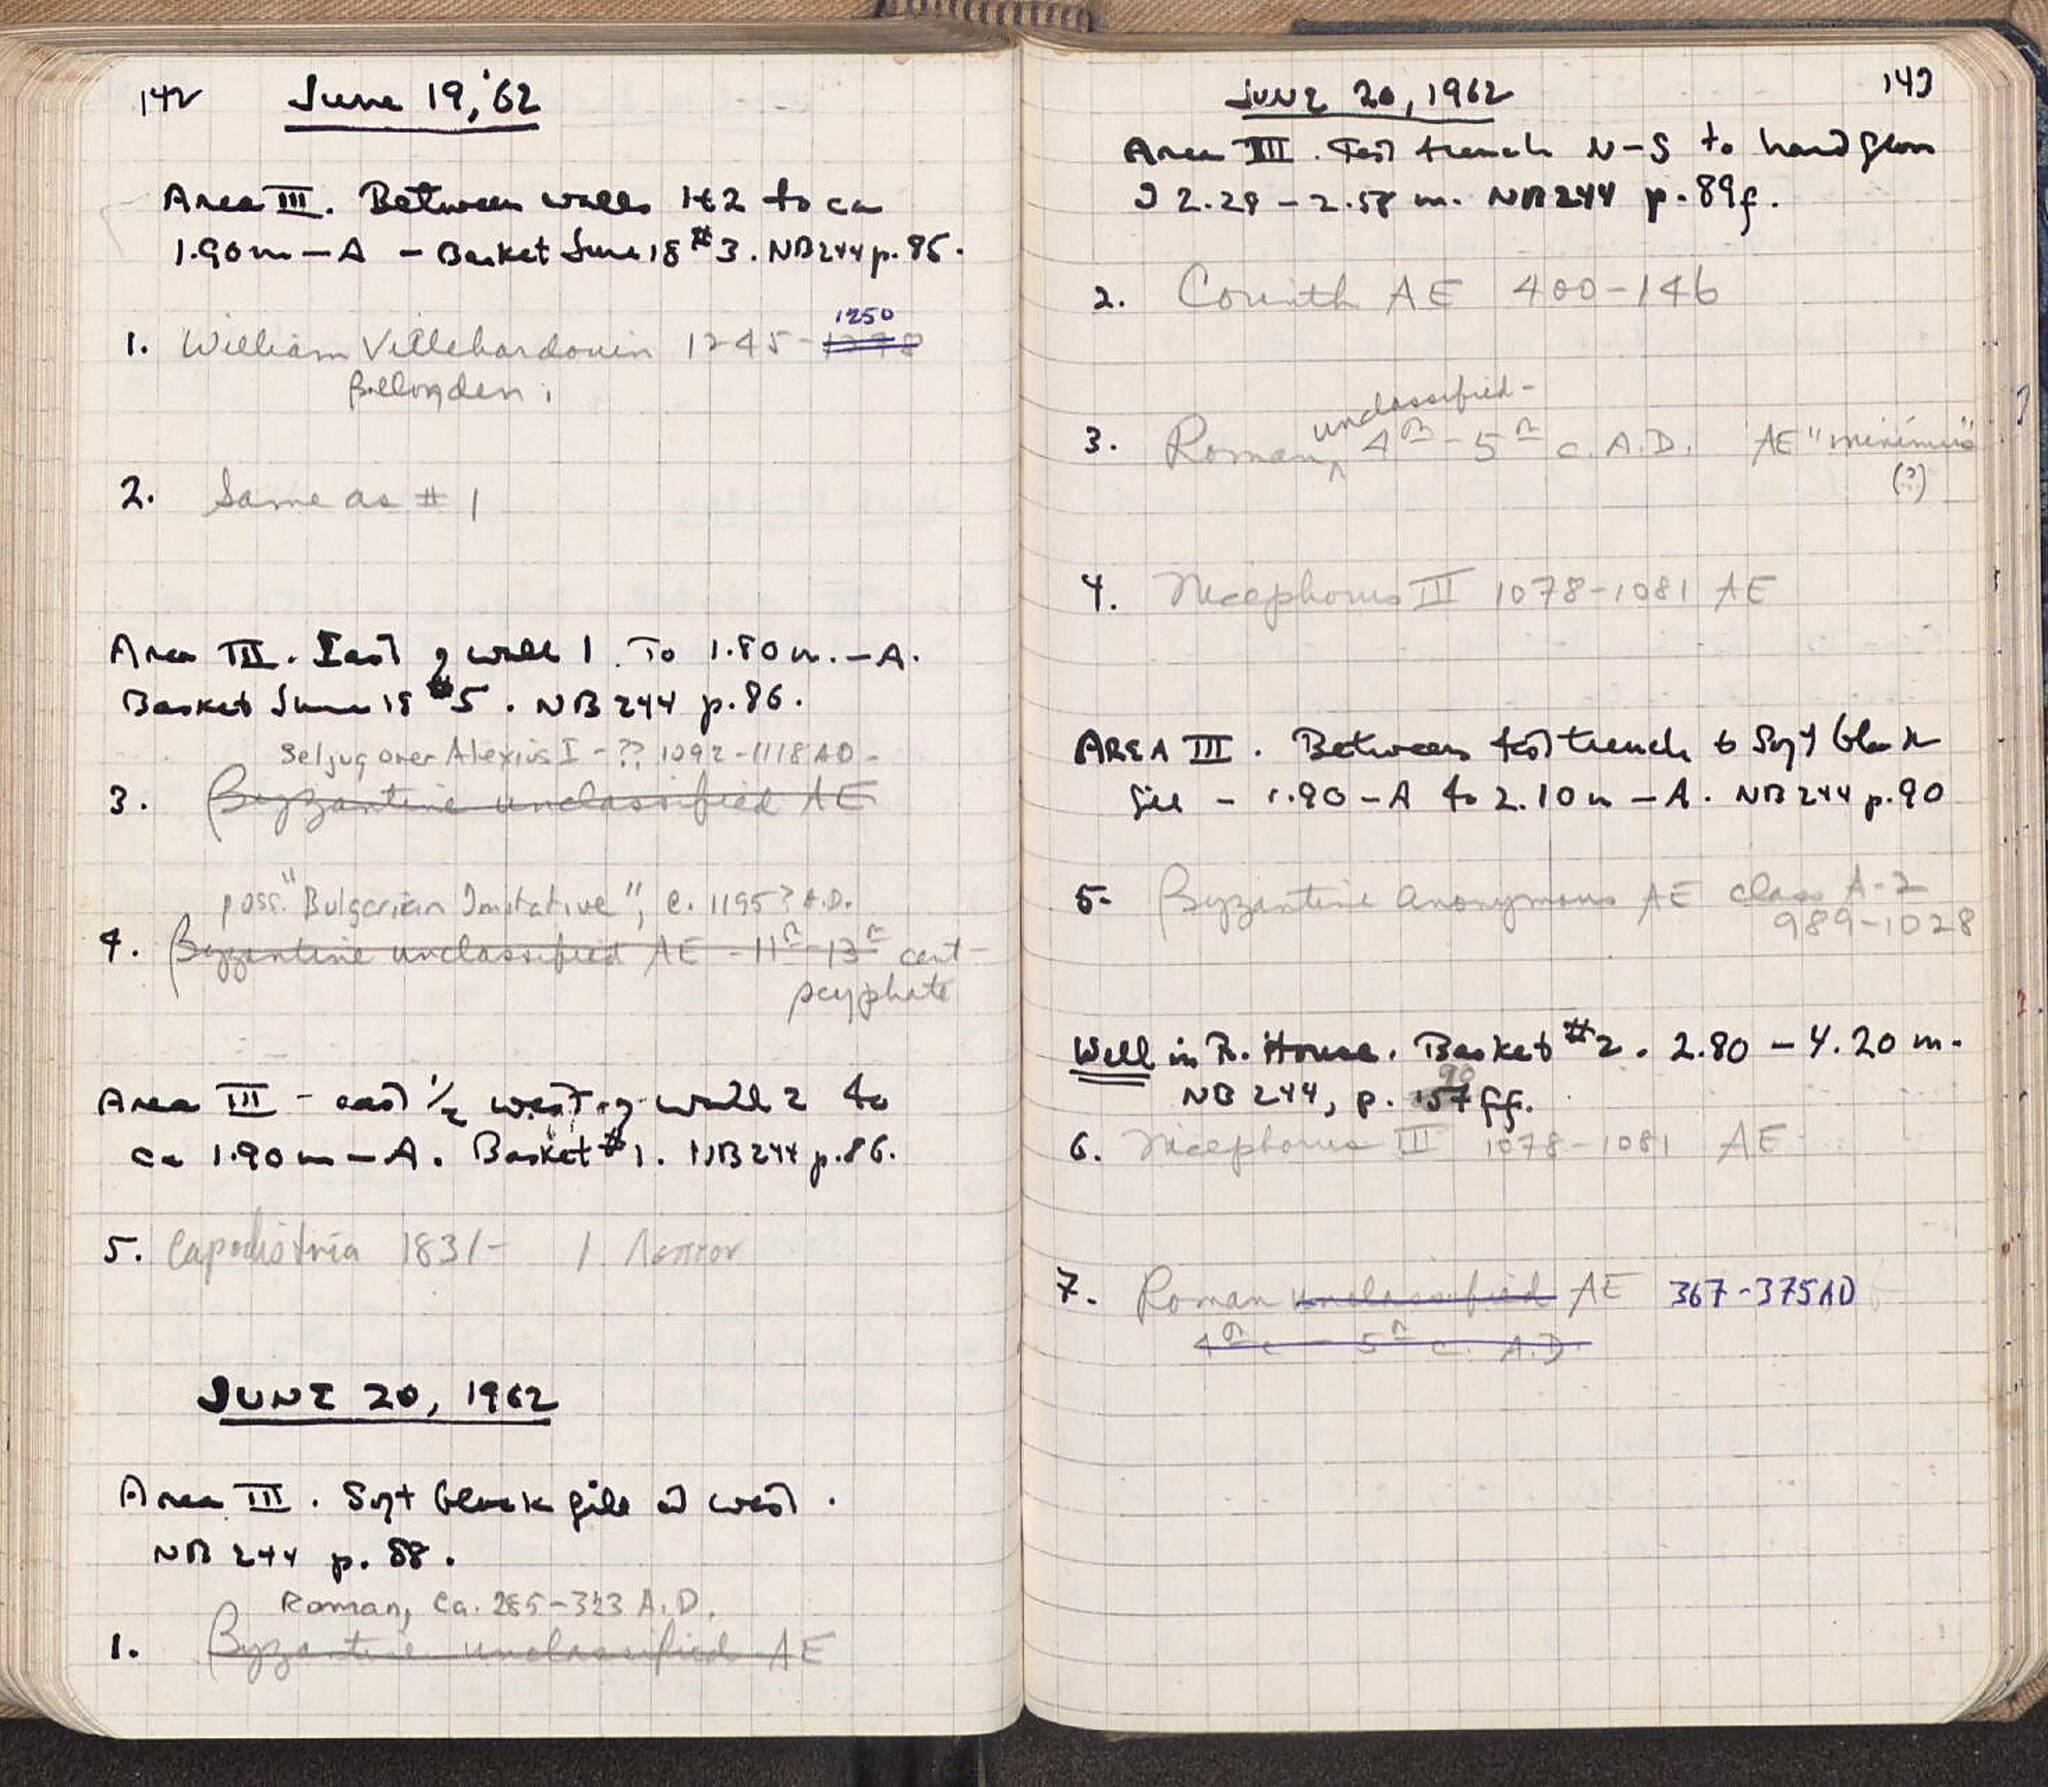 142 June 19, '62
Area III. Between walls 1+2 to ca
1.90 m – A – Basket June 18 #3. NB 244 p. 85.
1250
1. William Villehardouin 1245-1278
Billon den.
2. Same as # 1
Area III. East of wall 1. To 1.80 m. – A.
Basket June 18 #5. NB 244 p. 86.
Seljuq over Alexius I - ?? 1092-1118 AD -
3. Byzantine unclassified AE
poss. "Bulgarian Imitative", c. 1195? A.D.
4. Byzantine unclassified AE - 11th-13th cent -
scyphate
Area III – east 1/2 west of wall 2 to
ca 1.90 m – A. Basket #1. NB 244 p. 86.
5. Capodistria 1831- 1 Λεπτον
JUNE 20, 1962
Area III. Soft black fill at west.
NB 244 p. 88.
Roman, ca. 285-323 A.D.
1. Byzantine unclassified AE
JUNE 20, 1962 143
Area III. Test trench N-S to hard floor
2.29 – 2.58 m. NB 244 p. 89f.
2. Corinth AE 400-146
unclassified-
3. Roman ^ 4th-5th c. A.D. AE "minimus"
(?)
4. Nicephorus III 1078-1081 AE
AREA III. Between test trench & Soft black
fill – 1.90 – A to 2.10 m – A. NB 244 p. 90
5. Byzantine Anonymous AE class A-2
989-1028
Well in R. House. Basket #2. 2.80 – 4.20 m.
90
NB 244, p. 157 ff.
6. Nicephorus III 1078-1081 AE
7. Roman unclassified AE 367-375 AD
4th c - 5th c. A.D.